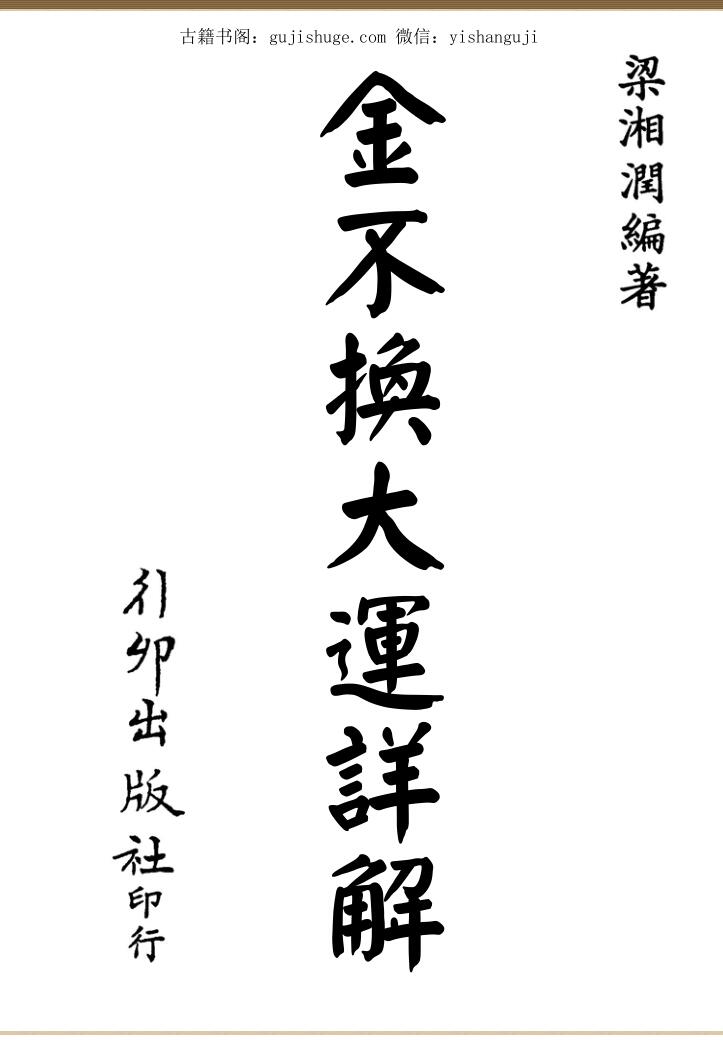 古籍书阁：gujishuge.com 微信：yishanguji
梁湘潤編著
金不換大運詳解
行卯出版社印行